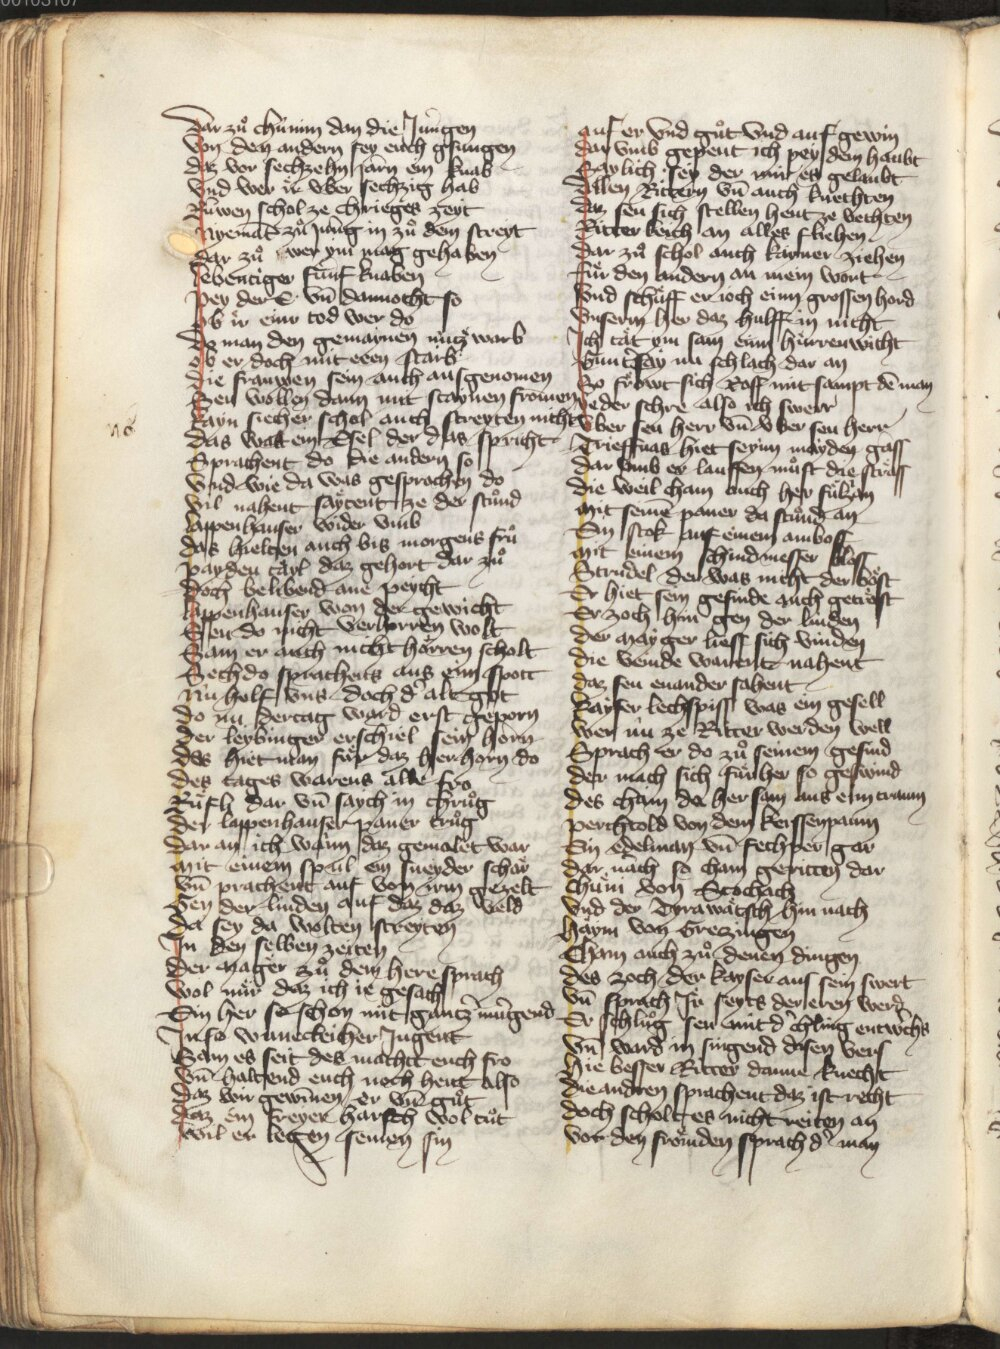 00103107
Dar zů chümin dan die Jungen
Von den andern sey euch gesungen
Daz vor sechzehn jarn ein knab
Und wer ir vber sechzig hab
Rüwen schol ze chrieges zeyt
Nyemät zů jung in zů dem streyt
Dar zů wer ym mag gehaben
Lebentiger fünf knaben
Pey der E vn̄ dannocht so
Ob ir einr tod wer do
Do man den gemainen nutz warb
Ob er doch mit eren starb
Die frauwen sein auch ausgenomen
Seu wollen dann mit staynen fromen
Kayn siecher schol auch streyten nicht
Das was ein Esel der das spricht
Sprachent do die andern so
Und wie da was gesprochen do
Vil nahent saytent ze der stůnd
Lappenhauser wider vmb
Das hielten auch bis morgens frů
Payden tayl daz gehort dar zů
Doch belibend ane peycht
Lappenhauser von der gewicht
Seu do nicht verhorren wolt
Sam er auch nicht hörren scholt
Sechdo sprachens aus eim spott
Nu helf vns doch d̕ alt got
Do nu der tag ward erst geporn
Der leybinger erschiel sein horn
Des hiet man für daz herhorn do
Des tages warens alle fro
Rüfli dar vn̄ saych in chrůg
Der lappenhauser paner trůg
Dar an ich wänn daz gemalet war
Mit einem spül ein sneyder schär
Vn̄ prachent auf von irm gezelt
Bey der linden auf daz daz veld
Da sey da wolten streyten
In den selben zeiten
Der mayer zů dem here sprach
Wol mir daz ich ie gesach
Ein her so schon mit gantz mugend
In so wunneckicher Jugent
Sam es seit des machtt euch fro
Vn̄ haltend euch noch heut also
Daz wir gewinen er vn̄ gůt
Daz ein freyer harsch wol tůt
Wil er legen seinen sin
auf er vnd gůt vnd auf gewin
Dar vmb gepeut ich pey dem haubt
Saylich sey der mir es gelaubt
Allen Rittern vn̄ auch knechten
Daz seu sich stellen heut ze vechten
Ritterleich an alles fliehen
Dar zů schol auch kainer ziehen
Für den andern an mein wort
Und schüff er ioch einn grossen hord
Unserm her daz hulff in nicht
Ich tät ym sam eim hürrenwicht
Sunt sey nu schlach dar an
So fröwt sich Ross mit sampt dē man
Jeder schre also ich swerr
Uber seu herr vn̄ vber seu herr
Trieffnas hiet seyim mayden gass
Dar vmb er lauffen můst die strass
Die weil cham auch her füllzan
Mit seinē paner da stůnd an
Ein stok auf einem amboss
Mit einem schindmesser bloss
Strudel der was nicht der böst
Er hiet sein gesinde auch getröst
Er zoch hin gen der linden
Der mayger liess sich vinden
Die veinde warent nahent
Daz seu enander sahent
Kayser lechspiss was ein gesell
Wer nu ze Ritter werden well
Sprach er do zů seinem gesind
Der mach sich für her so geswind
Des cham do her sam aus eim traum
Perchtold von dem kerssenpaum
Ein edelman vn̄ fechter gar
Dar nach so cham geritten dar
Chüni von Stochach
Und der Dyrawätsch hin nach
Haym von Greczingen
Cham auch zů denen dingen
Des zoch der kayser aus sein swert
Vn̄ sprach Jr seyts der eren werd
Er schlůg seu mit d̕ chling entwerchs
Vn̄ ward in singend disen vers
Hie besser Ritter danne knecht
Die andren sprachent daz ist recht
Doch scholt es nicht reiten an
Vor den frömden sprach d̕ man